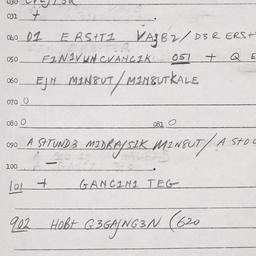 031 +
040 D1 ERS+T1 VAJB2/ D3R ERS+
050 F1N1VUNCVANC1K 051 + Q E
060 EJN M1N8UT/M1N8UTKALE
070 O
080 O 081 O
090 A S+TUND3 M1DRAJS1K M1N8UT/ A S+O
100 —
101 + GANC1N1 TEG
902 HOB+ G3GAJNG3N (620